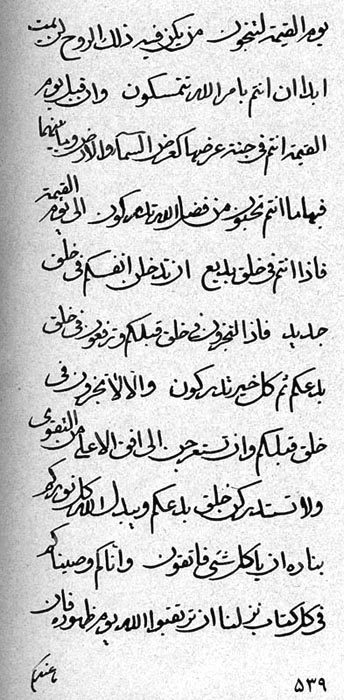 يوم القيمة لتنجون من يكن فيه ذلك الروح لن يمت
ابدا ان انتم بامر الله تتمسكون وان قبل يوم
القيمة انتم في جنة عرضها كعرض السماء والارض وما بينهما
فيها ما انتم تحبون من فضل الله تدركون الى يوم القيمة
فاذا انتم في خلق بديع ان تدخلن انفسكم في خلق
جديد فاذا لتجزون في خلق قبلكم وترفعون في خلق
بدعكم ثم كل خير تدركون والا لا تجزون في
خلق قبلكم وان تستعرجن الى افق الاعلى من التقوى
ولا تستدركن خلق بدعكم ويبدل الله كل نوركم
بناره ان يا كل شئ فاتقون وانا لكم وصيناكم
في كل كتاب نزلنا ان ترتقبوا الله يوم ظهوره فان
عنكم
٥٣٩